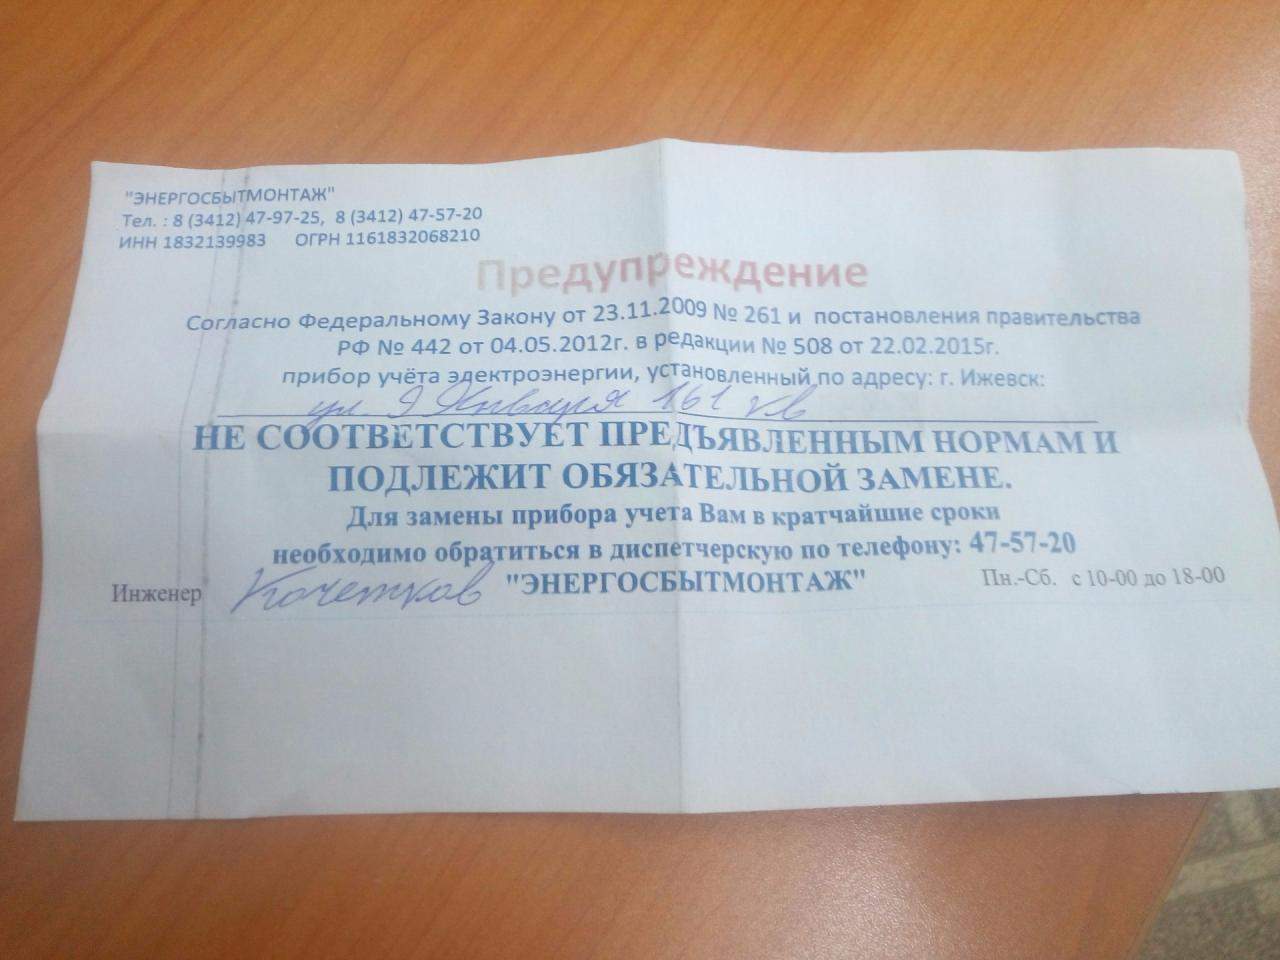 "ЭНЕРГОСБЫТМОНТАЖ"
Тел. : 8 (3412) 47-97-25, 8 (3412) 47-57-20
ИНН 1832139983 ОГРН 1161832068210
Предупреждение
Согласно Федеральному Закону от 23.11.2009 № 261 и постановления правительства
РФ № 442 от 04.05.2012г. в редакции № 508 от 22.02.2015г.
прибор учёта электроэнергии, установленный по адресу: г. Ижевск:
ул. 9 Января 161 кв
НЕ СООТВЕТСТВУЕТ ПРЕДЪЯВЛЕННЫМ НОРМАМ И
ПОДЛЕЖИТ ОБЯЗАТЕЛЬНОЙ ЗАМЕНЕ.
Для замены прибора учета Вам в кратчайшие сроки
необходимо обратиться в диспетчерскую по телефону: 47-57-20
Инженер Кочетков "ЭНЕРГОСБЫТМОНТАЖ" Пн.-Сб. с 10-00 до 18-00